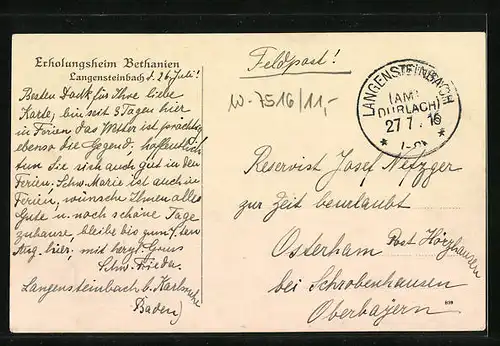 Erholungsheim Bethanien
Langensteinbach d. 26. Juli!
Besten Dank für Ihre liebe
Karte, bin seit 8 Tagen hier
in Ferien das Wetter ist prächtig
ebenso die Gegend, hoffentlich
tun Sie sich auch gut in den
Ferien. Schw. Marie ist auch in
Ferien, wünsche Ihnen alles
Gute u. noch schöne Tage
zuhause, bleibe bis zum
Aug. hier. mit herzl. Gruss
Schw. Frieda.
Langensteinbach b. Karlsruhe
Baden)
Feldpost!
W-7516/11,-
LANGENSTEINBACH
(AMT
DURLACH)
27 7. 16
Reservist Josef Netzger
zur Zeit beurlaubt
Osterham Post Hörzhausen
bei Schrobenhausen
Oberbayern